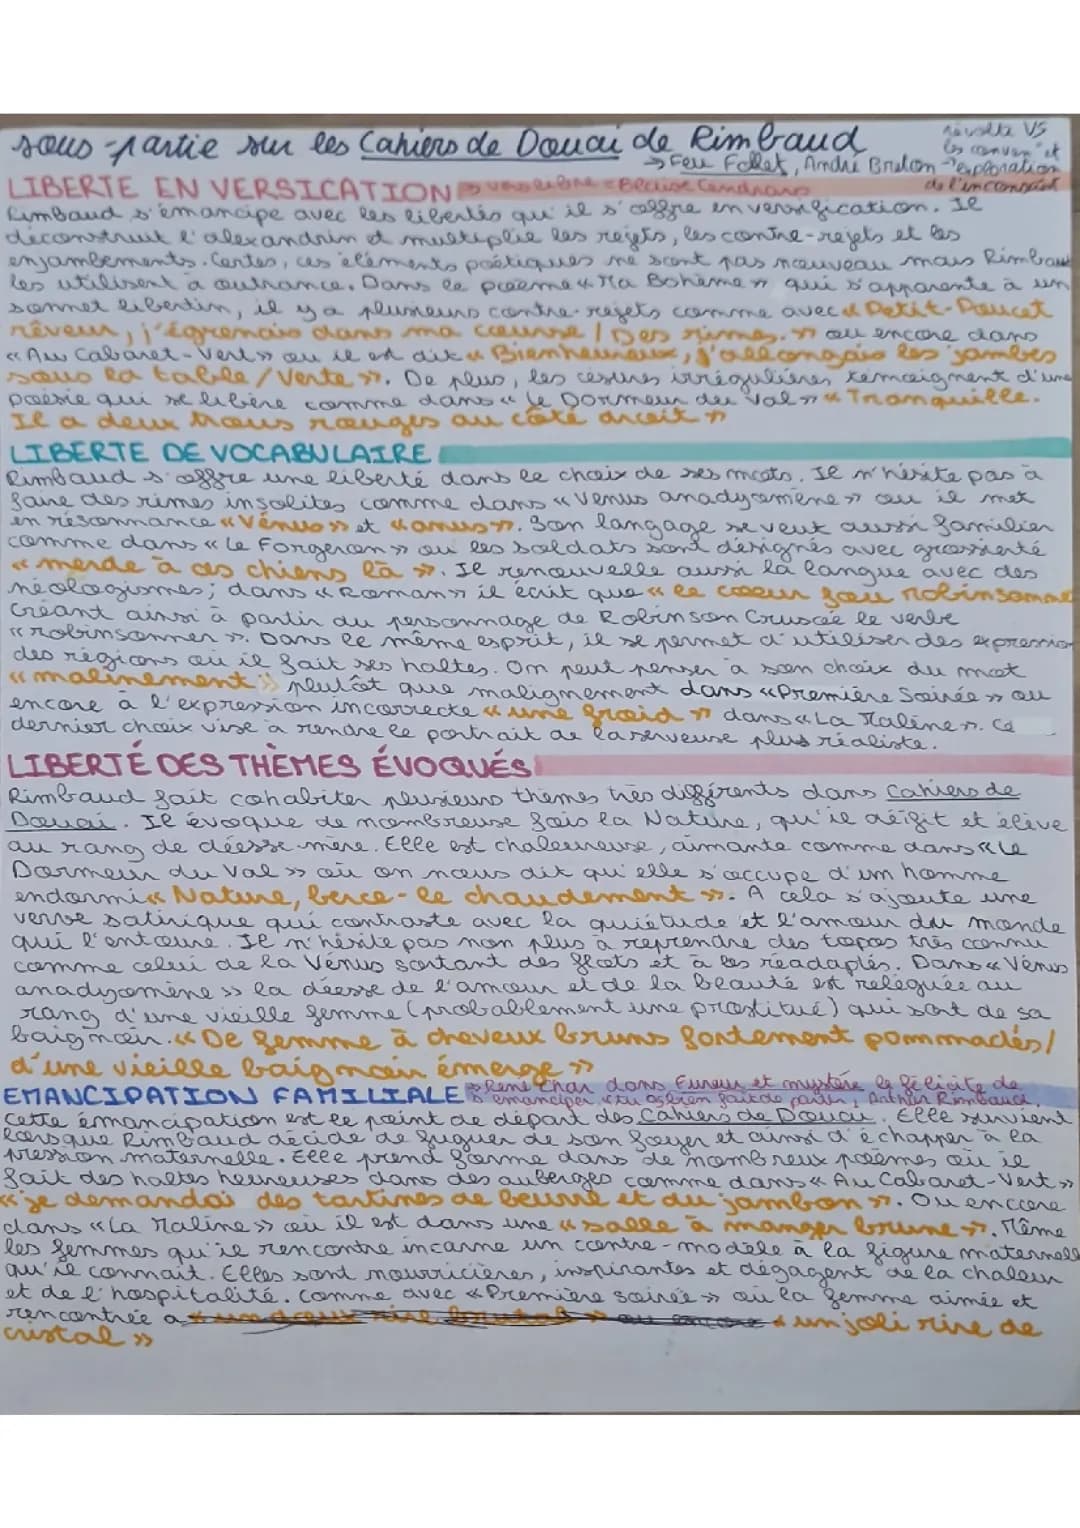 sous-partie sur les Cahiers de Douai de Rimbaud
révolte VS
les conven° et
→ Feu Follet, André Breton → exploration
de l'inconscient
LIBERTE EN VERSICATION → vers libre = Blaise Cendrars
Rimbaud s'émancipe avec les libertés qu'il s'offre en versification. Il
déconstruit l'alexandrin et multiplie les rejets, les contre-rejets et les
enjambements. Certes, ces éléments poétiques ne sont pas nouveau mais Rimbaud
les utilisent à outrance. Dans le poème « Ma Bohème » qui s'apparente à un
sonnet libertin, il y a plusieurs contre-rejets comme avec « Petit-Poucet
rêveur, j'égrenais dans ma course / Des rimes. » ou encore dans
« Au Cabaret-Vert » ou il est dit « Bienheureux, j'allongais les jambes
sous la table / Verte ». De plus, les césures irrégulières témoignent d'une
poésie qui se libère comme dans « Le Dormeur du Val » « Tranquille.
Il a deux trous rouges au côté droit »
LIBERTE DE VOCABULAIRE
Rimbaud s'offre une liberté dans le choix de ses mots. Il n'hésite pas à
faire des rimes insolites comme dans « Venus anadyomène » ou il met
en résonnance « Vénus » et « anus ». Son langage se veut aussi familier
comme dans « Le Forgeron » ou les soldats sont désignés avec grossierté
« merde à ces chiens là ». Il renouvelle aussi la langue avec des
néologismes; dans « Roman » il écrit que « le coeur fou robinsonne
Créant ainsi à partir du personnage de Robinson Crusoée le verbe
« robinsonner ». Dans le même esprit, il se permet d'utiliser des expression
des régions où il fait ses haltes. On peut penser à son choix du mot
« malinement » plutôt que malignement dans « Première Soirée » ou
encore à l'expression incorrecte « une froid » dans « La Maline ». Ce
dernier choix vise à rendre le portrait de la serveuse plus réaliste.
LIBERTÉ DES THÈMES ÉVOQUÉS
Rimbaud fait cohabiter plusieurs thèmes très différents dans Cahiers de
Douai. Il évoque de nombreuse fois la Nature, qu'il déifit et élève
au rang de déesse-mère. Elle est chaleureuse, aimante comme dans « Le
Dormeur du Val » où on nous dit qu'elle s'occupe d'un homme
endormi « Nature, berce-le chaudement ». A cela s'ajoute une
verve satirique qui contraste avec la quiétude et l'amour du monde
qui l'entoure. Il n'hésite pas non plus à reprendre des topos très connu
comme celui de la Vénus sortant des flots et à les réadaptés. Dans « Vénus
anadyomène » la déesse de l'amour et de la beauté est reléguée au
rang d'une vieille femme (probablement une prostitué) qui sort de sa
baignoir. « De femme à cheveux bruns fortement pommadés /
d'une vieille baignoir émerge »
EMANCIPATION FAMILIALE → René Char dans Fureur et mystère la félicite de
s'émanciper « tu as bien fait de partir, Arthur Rimbaud.
Cette émancipation est le point de départ des Cahiers de Douai. Elle survient
lorsque Rimbaud décide de fuguer de son foyer et ainsi d'échapper à la
pression maternelle. Elle prend forme dans de nombreux poèmes où il
fait des haltes heureuses dans des auberges comme dans « Au Cabaret-Vert »
« je demandai des tartines de beurre et du jambon ». Ou encore
dans « La Maline » où il est dans une « salle à manger brune ». Même
les femmes qu'il rencontre incarne un contre-modèle à la figure maternelle
qu'il connait. Elles sont nourricières, inspirantes et dégagent de la chaleur
et de l'hospitalité. Comme avec « Première soirée » où la femme aimée et
rencontrée a « un doux rire brutal » ou encore « un joli rire de
cristal »